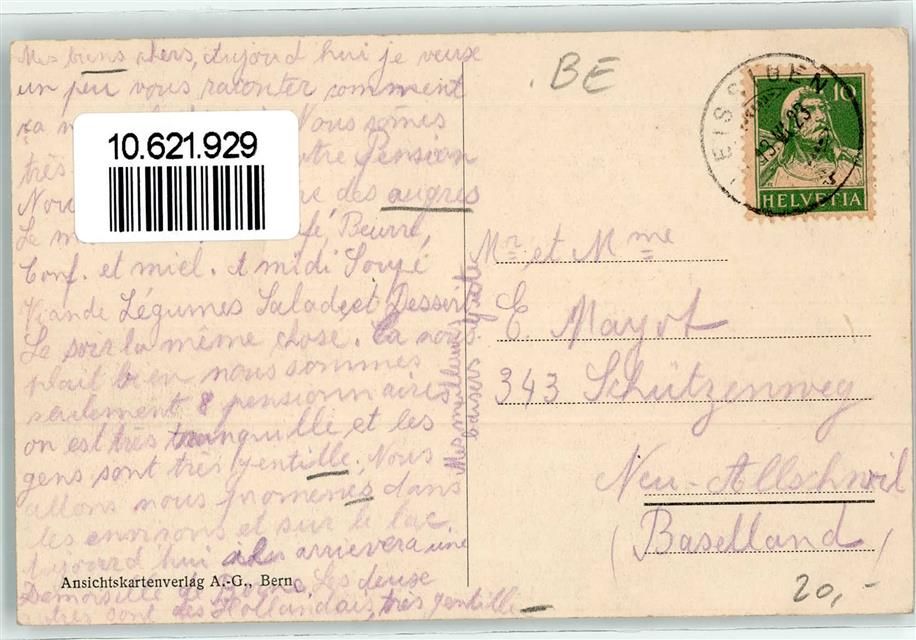 Mes biens chers, Aujourd hui je veuse
un peu vous raconter comment
ça Nous sômes
très notre Pension
Nou re des augres
Le m fé, Beurre,
Conf. et miel. A midi Soupé
Viande Légumes Salade et Dessert
Le soir la même chose. Ca nous
plait bien nous sommes
seulement 8 pensionnaires
on est très tranquille et les
gens sont très gentille. Nous
allons nous promenes dans
les environs et sur le lac.
Aujourd hui arrivera une
Demoiselle de Berne. Les deuse
autres sont des Hollandais, très gentille
Mes meilleures
baisers Yvite
10.621.929
BE
EISSIGEN
13. 23
10
HELVETIA
Mr. et Mme
E. Mayot
343 Schützenweg
Neu-Allschwil
(Baselland)
20,-
Ansichtskartenverlag A.-G., Bern